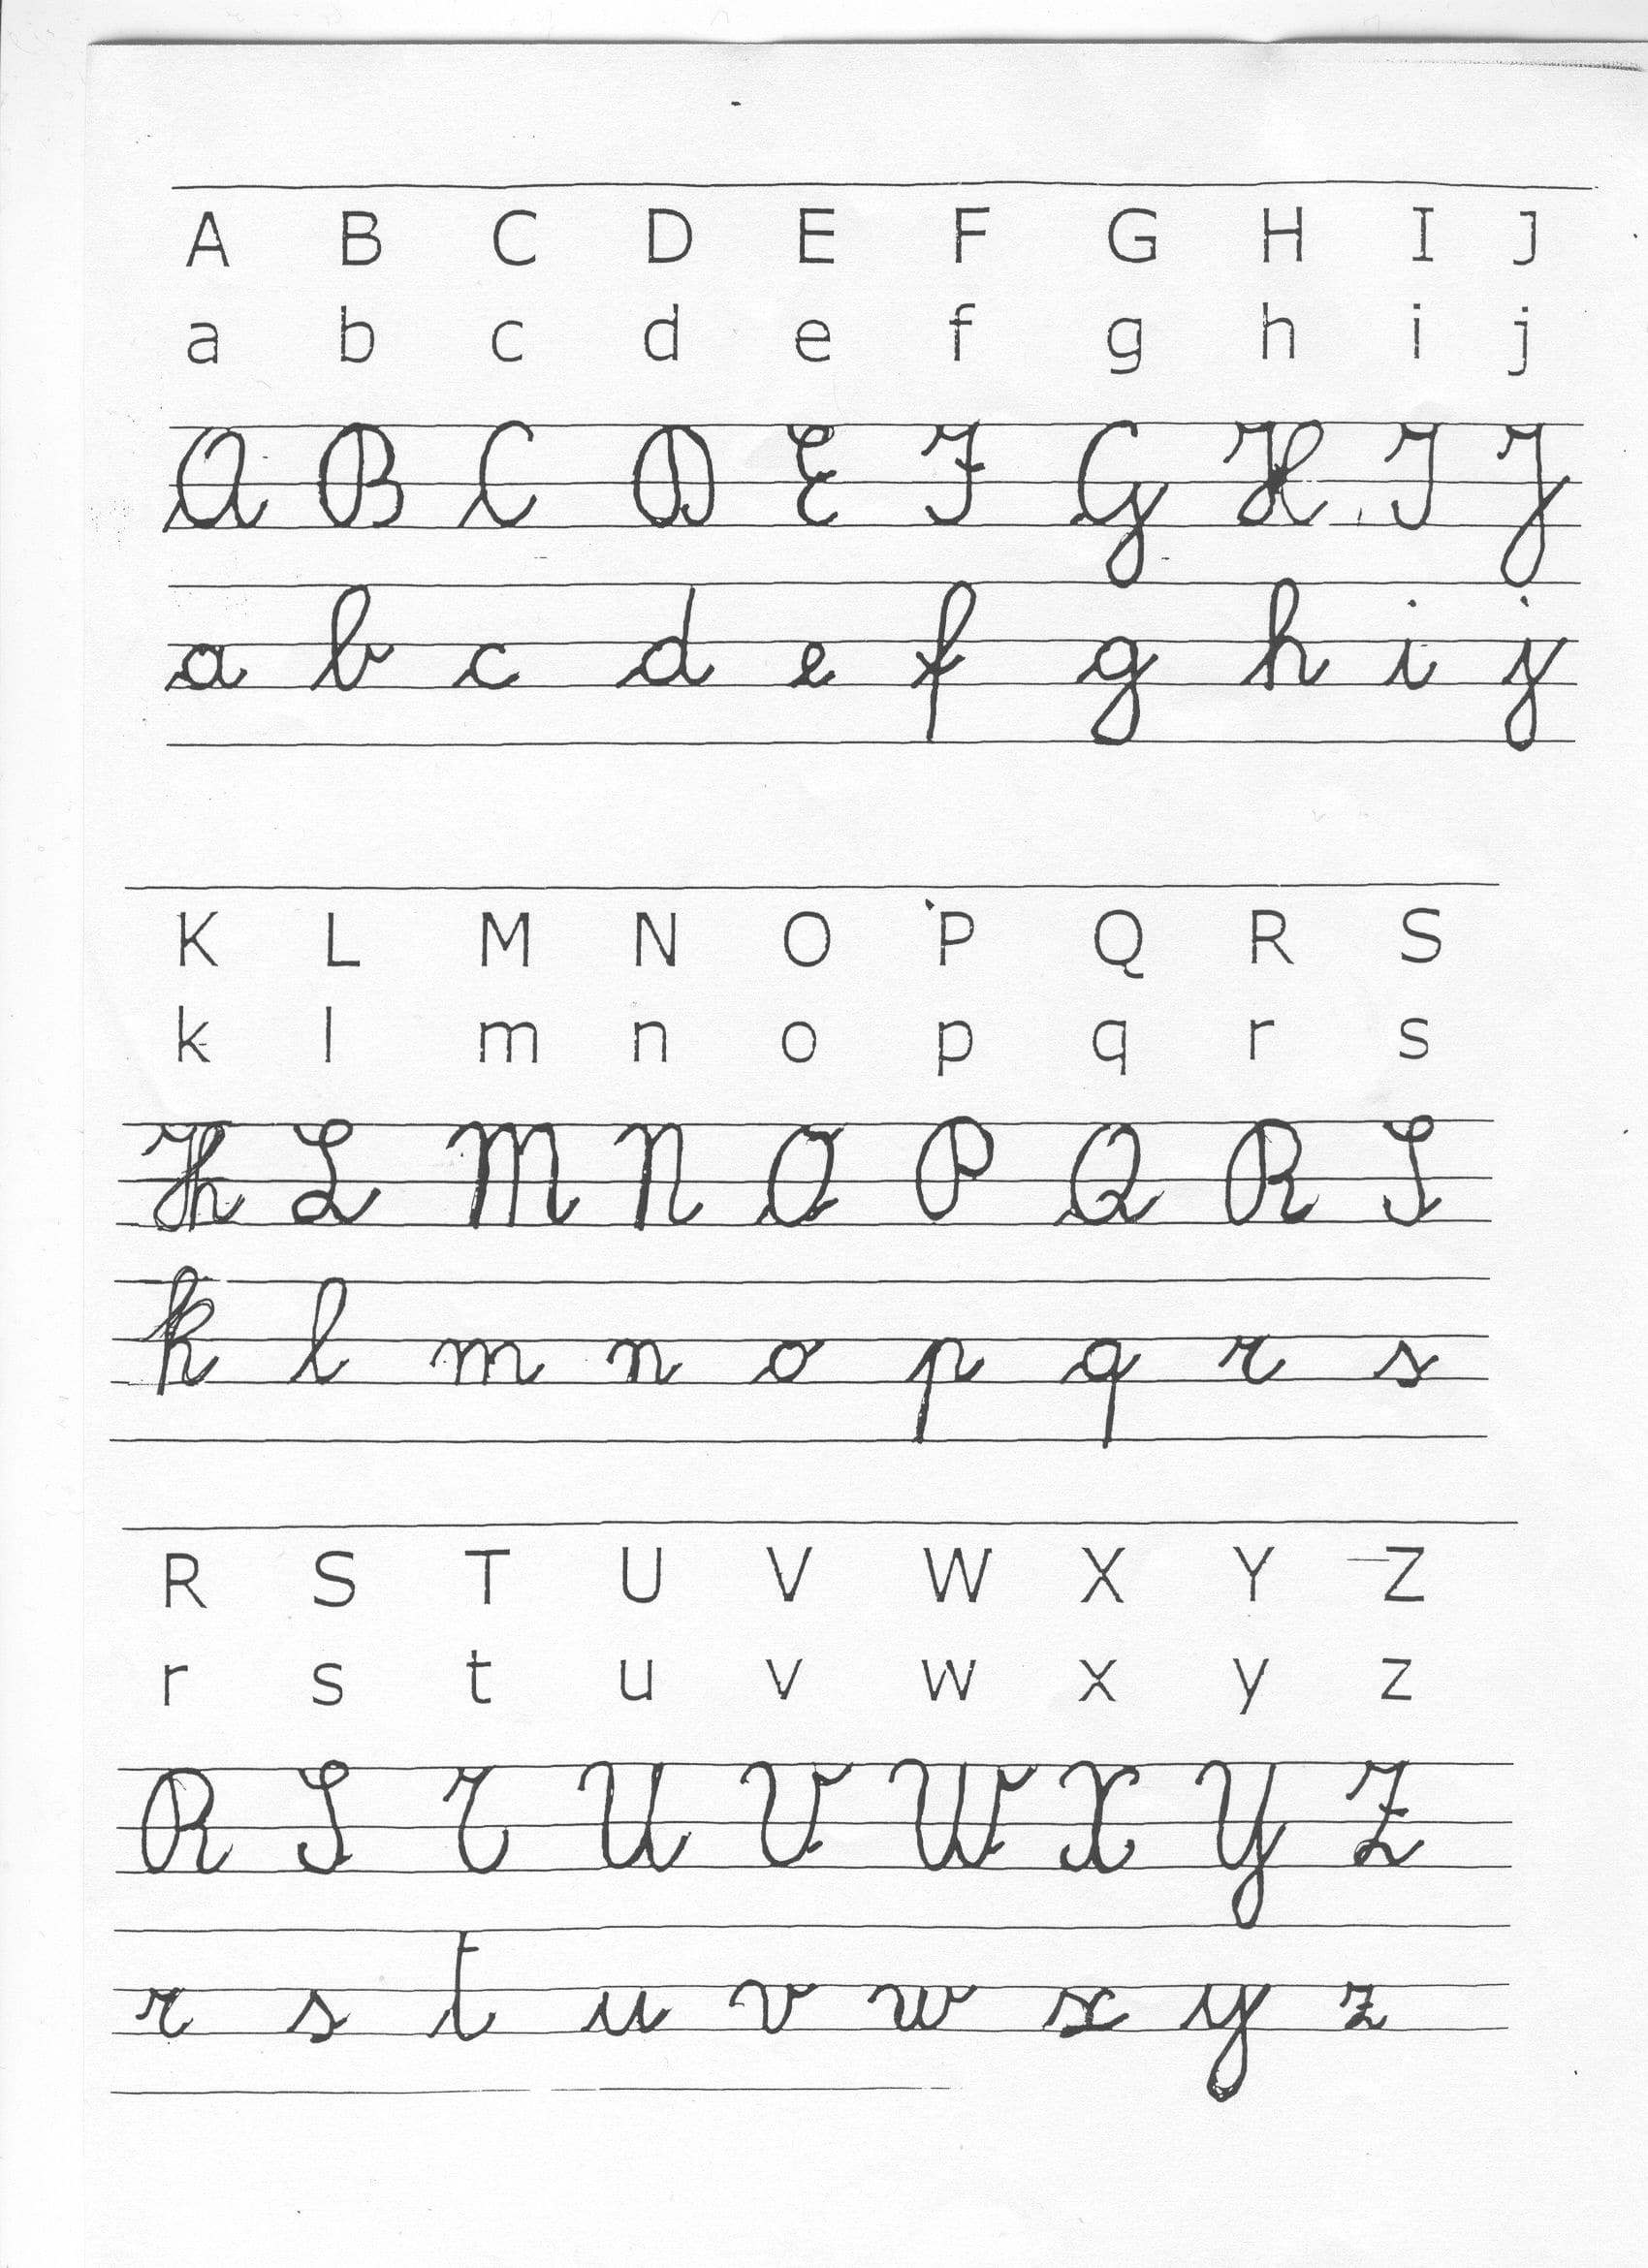 A B C D E F G H I J
a b c d e f g h i j
A B C D E F G H I J
a b c d e f g h i j
K L M N O P Q R S
k l m n o p q r s
K L M N O P Q R S
k l m n o p q r s
R S T U V W X Y Z
r s t u v w x y z
R S T U V W X Y Z
r s t u v w x y z